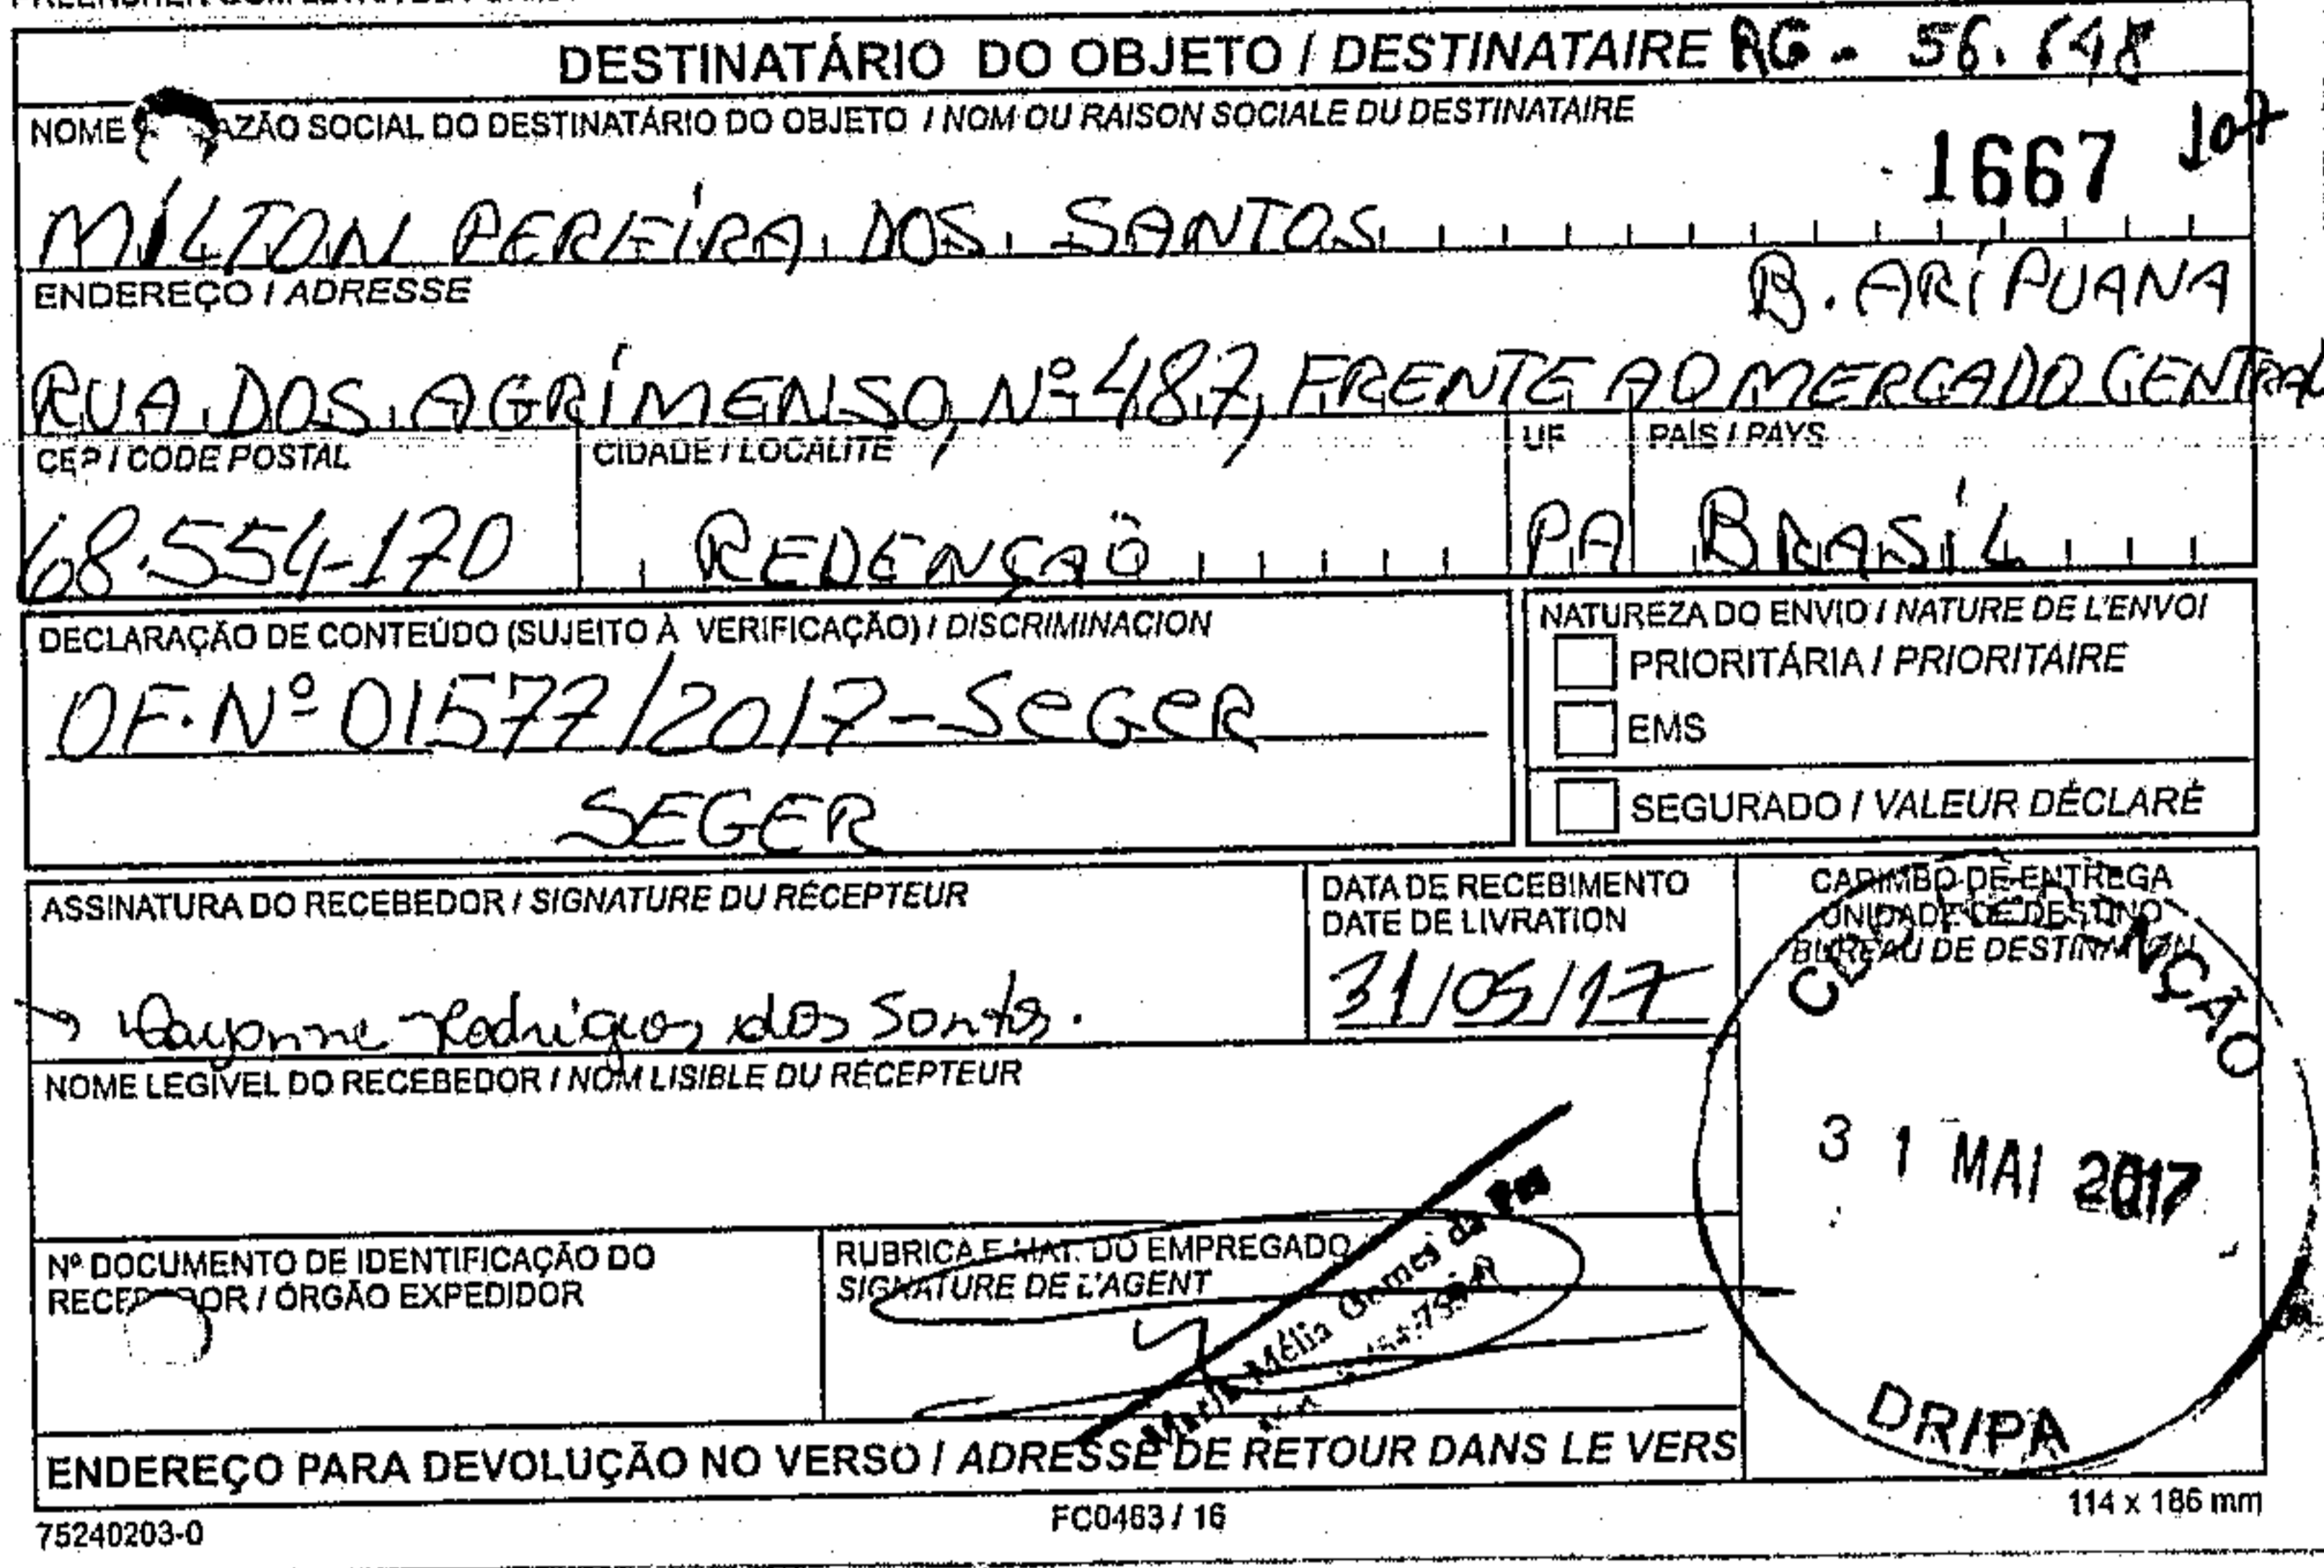 DESTINATÁRIO DO OBJETO / DESTINATAIRE RG - 56.648
NOME AZÃO SOCIAL DO DESTINATÁRIO DO OBJETO / NOM OU RAISON SOCIALE DU DESTINATAIRE
1667 107
MILTON PEREIRA DOS SANTOS
ENDEREÇO / ADRESSE
B. ARIPUANA
RUA DOS AGRIMENSO, Nº 487, FRENTE AO MERCADO CENTRAL
CEP / CODE POSTAL CIDADE / LOCALITÉ UF PAÍS / PAYS
68.554-170 REDENÇAÕ PA BRASIL
DECLARAÇÃO DE CONTEÚDO (SUJEITO À VERIFICAÇÃO) / DISCRIMINACION
NATUREZA DO ENVIO / NATURE DE L'ENVOI
PRIORITÁRIA / PRIORITAIRE
OF. Nº 01577/2017-SEGER
EMS
SEGER
SEGURADO / VALEUR DÉCLARÉ
ASSINATURA DO RECEBEDOR / SIGNATURE DU RÉCEPTEUR
DATA DE RECEBIMENTO
DATE DE LIVRATION
CARIMBO DE ENTREGA
UNIDADE DE DESTINO
BUREAU DE DESTINATION
Rodrigues dos Santos.
31/05/17
NOME LEGÍVEL DO RECEBEDOR / NOM LISIBLE DU RÉCEPTEUR
31 MAI 2017
Nº DOCUMENTO DE IDENTIFICAÇÃO DO
RECEBEDOR / ÓRGÃO EXPEDIDOR
RUBRICA E MAT. DO EMPREGADO
SIGNATURE DE L'AGENT
Maria Mélia Gomes da Paz
DR/PA
ENDEREÇO PARA DEVOLUÇÃO NO VERSO / ADRESSE DE RETOUR DANS LE VERS
75240203-0 FC0463 / 16 114 x 186 mm